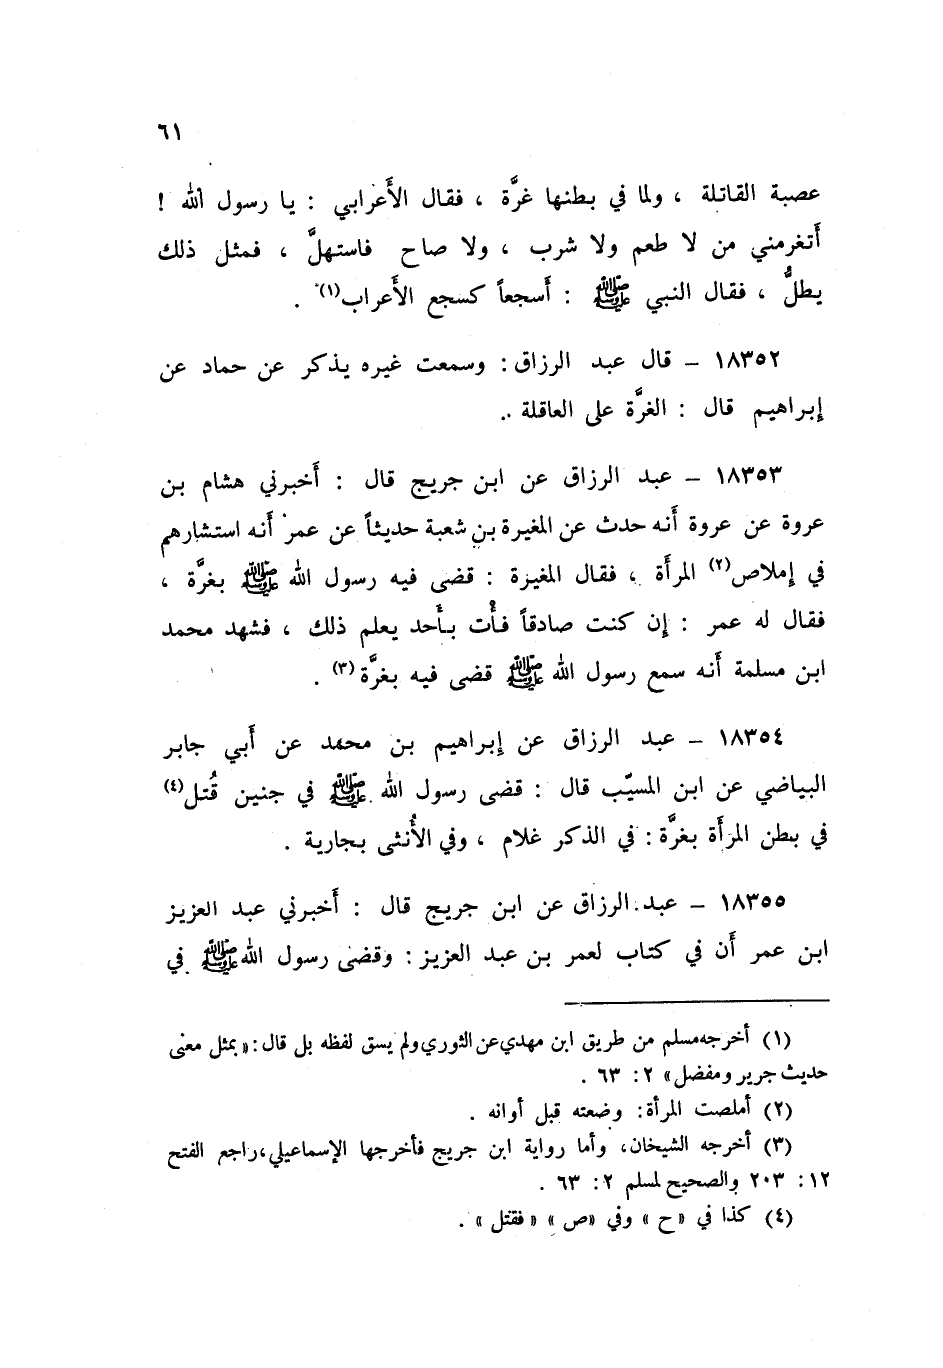 ٦١
عصبة القاتلة ، ولما في بطنها غرَّة ، فقال الأَعرابي : يا رسول الله !
أَتغرمني من لا طعم ولا شرب ، ولا صاح فاستهلَّ ، فمثل ذلك
يطلُّ ، فقال النبي ﷺ : أَسجعاً كسجع الأَعراب(١) .
١٨٣٥٢ – قال عبد الرزاق : وسمعت غيره يذكر عن حماد عن
إبراهيم قال : الغرَّة على العاقلة .
١٨٣٥٣ – عبد الرزاق عن ابن جريج قال : أَخبرني هشام بن
عروة عن عروة أَنه حدث عن المغيرة بن شعبة حديثاً عن عمر أَنه استشارهم
في إملاص(٢) المرأَة ، فقال المغيرة : قضى فيه رسول الله ﷺ بغرَّة ،
فقال له عمر : إن كنت صادقاً فأْت بأَحد يعلم ذلك ، فشهد محمد
ابن مسلمة أَنه سمع رسول الله ﷺ قضى فيه بغرَّة(٣) .
١٨٣٥٤ – عبد الرزاق عن إبراهيم بن محمد عن أَبي جابر
البياضي عن ابن المسيّب قال : قضى رسول الله ﷺ في جنين قُتل(٤)
في بطن المرأَة بغرَّة : في الذكر غلام ، وفي الأُنثى بجارية .
١٨٣٥٥ – عبد الرزاق عن ابن جريج قال : أَخبرني عبد العزيز
ابن عمر أَن في كتاب لعمر بن عبد العزيز : وقضى رسول الله ﷺ في
(١) أخرجه مسلم من طريق ابن مهدي عن الثوري ولم يسق لفظه بل قال : « بمثل معنى
حديث جرير ومفضل » ٢ : ٦٣ .
(٢) أملصت المرأة : وضعته قبل أوانه .
(٣) أخرجه الشيخان، وأما رواية ابن جريج فأخرجها الإسماعيلي، راجع الفتح
١٢ : ٢٠٣ والصحيح لمسلم ٢ : ٦٣ .
(٤) كذا في « ح » وفي « ص » « فقتل » .